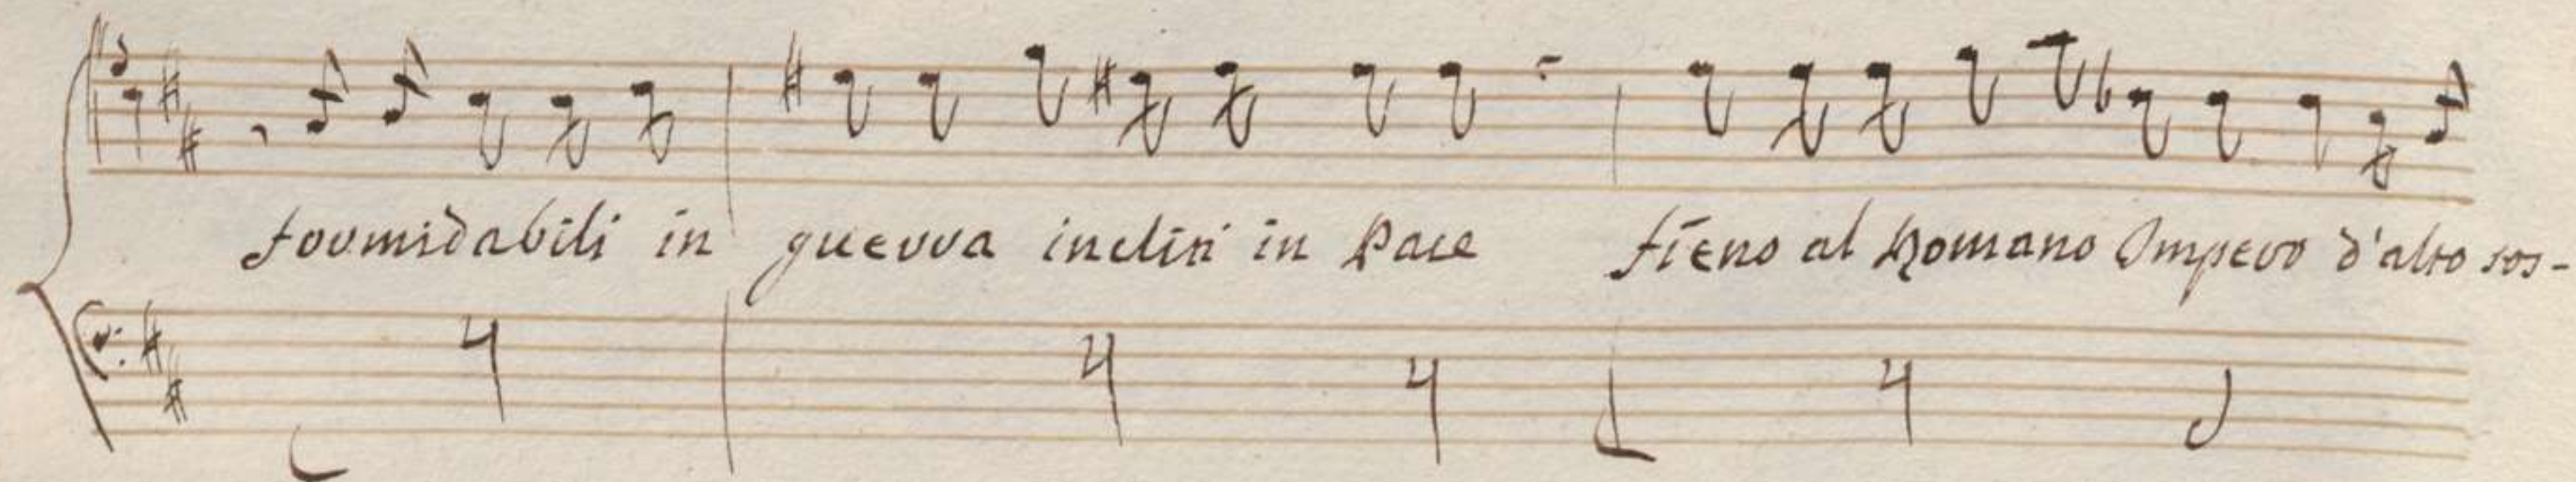 formidabili in guerra incliti in Pace sieno al Romano Impero d'alto sos-